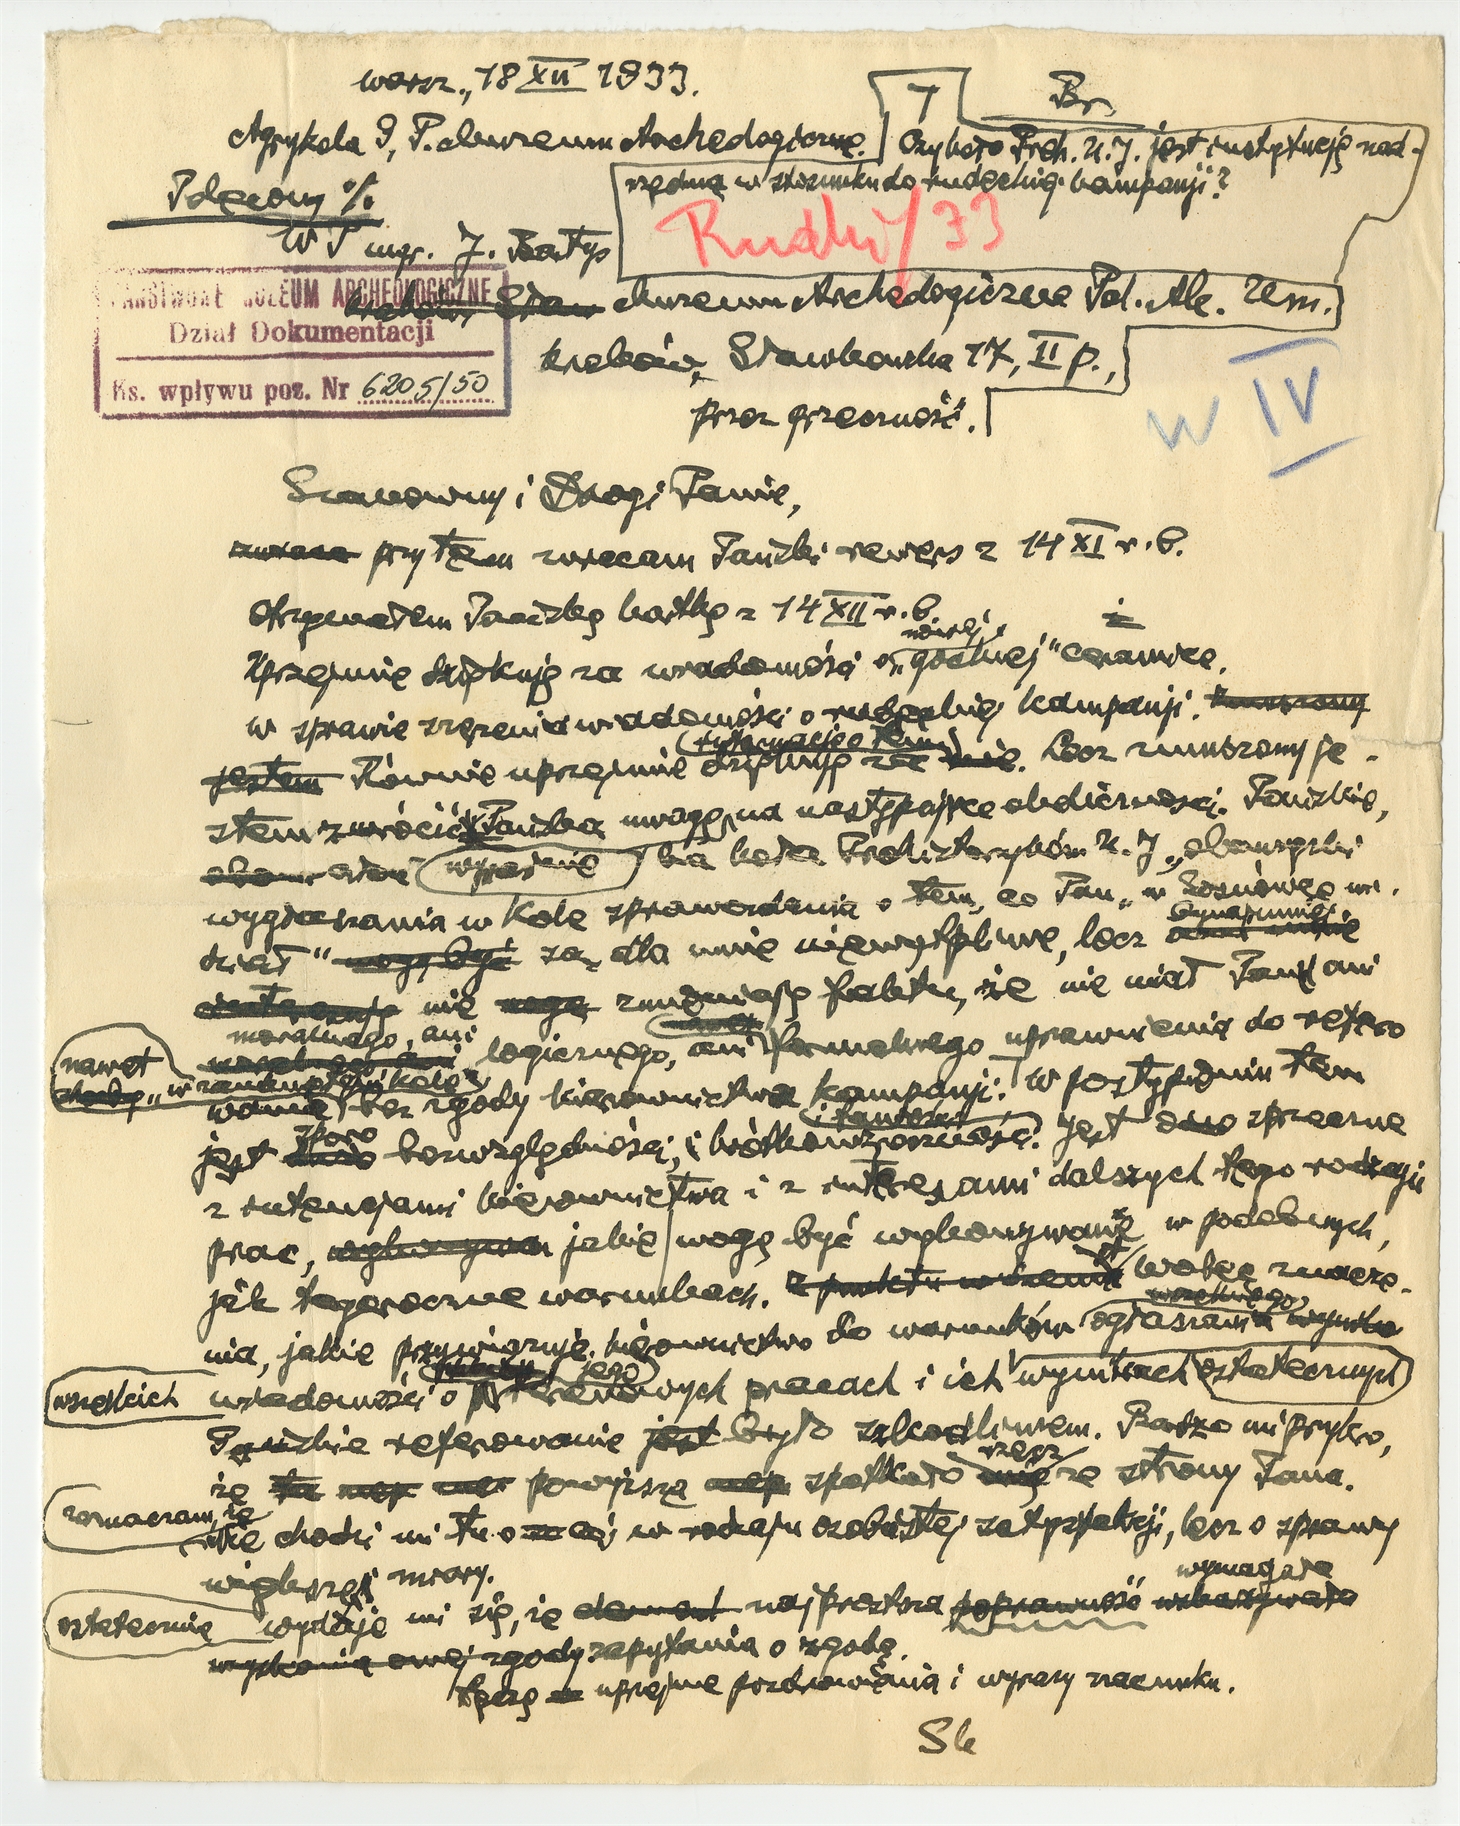 Warsz., 18 XII 1933.
7
Br.
Agrykola 9, P. Muzeum Archeologiczne.
Czy koło Preh. U.J. jest instytucją nad-
rzędną w stosunku do rudeckiej kampanji?
Rudki/33
Polecony %.
WP mgr. J. Bartys
PAŃSTWOWE MUZEUM ARCHEOLOGICZNE
Dział Dokumentacji
Ks. wpływu poz. Nr 6205/50
Muzeum Archeologiczne Pol. Ak. Um.
Kraków, Sławkowska 17, II p.,
przez grzeczność.
W IV
Szanowny i Drogi Panie,
przytem zwracam Pański rewers z 14 XI r.b.
Otrzymałem Pańską kartkę z 14 XII r.b.
Uprzejmie dziękuję za wiadomości o „gockiej" ceramice.
W sprawie szerzenia wiadomości o rudeckiej kampanji.
jestem Równie uprzejmie dziękuję za. Lecz zmuszony je-
stem zwrócić Pańską uwagę na następujące okoliczności. Pańskie,
wyraźnie dla Koła Prehistoryków U.J. „
wygłaszania w Kole sprawozdania o tem, co Pan „w
dział" są dla mnie niewątpliwe, lecz bynajmniej
nie zmniejszą faktu, że nie miał Pan ani
moralnego, ani logicznego, ani formalnego uprawnienia do refero
nawet
„w zamkniętem kole"
wania bez zgody kierownictwa kampanji. W postąpieniu tem
jest sporo bezwzględności, i krótkowzroczności. Jest sprzeczne
z intencjami kierownictwa i z interesami dalszych tego rodzaju
prac, jakie mogą być wykonywane w podobnych,
jak tegoroczne warunkach. Wobec znacze-
nia, jakie przywiązuje kierownictwo do warunków ogłaszania
wszelkich wiadomości o jego terenowych pracach i ich wynikach ostatecznych
Pańskie referowanie było szkodliwem. Bardzo mi przykro,
że powyższa rzecz spotkała ze strony Pana.
zaznaczam, że
nie chodzi mi tu o coś w rodzaju osobistej satysfakcji, lecz o sprawy
większej miary.
ostatecznie wydaje mi się, że najprostsza poprawność wymagała
zapytania o zgodę.
Łączę uprzejme pozdrowienia i wyrazy szacunku.
Sk